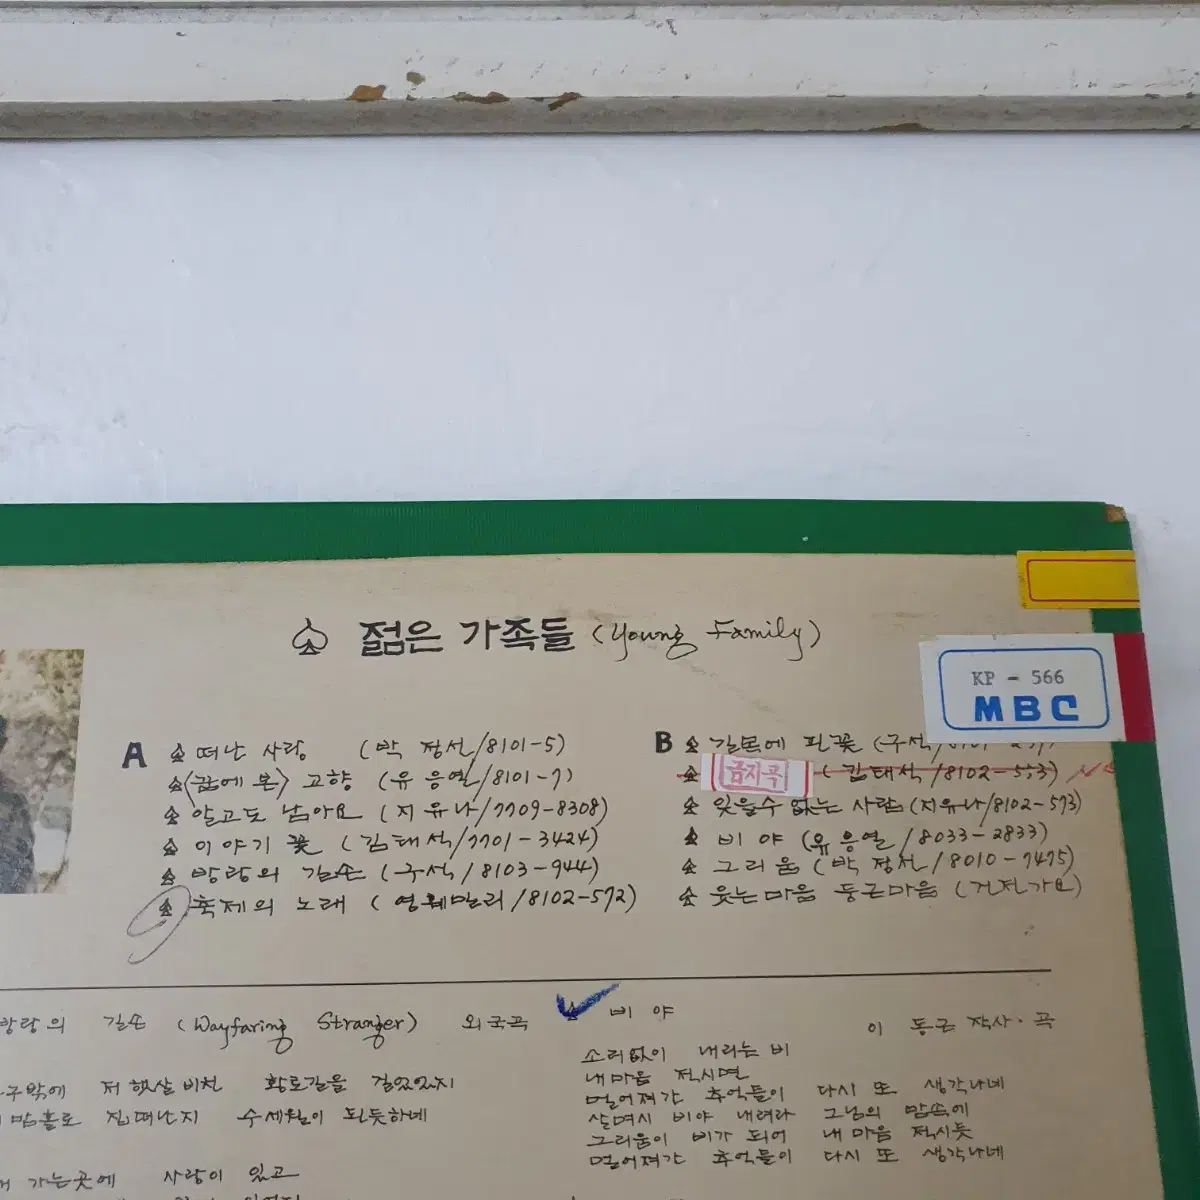 젊은 가족들 (Young Family)
KP - 566
MBC
A
떠난 사랑 (박 정선/8101-5)
<꿈에 본> 고향 (유 응열/8101-7)
알고도 남아요 (지유나/7709-8308)
이야기 꽃 (김태석/7701-3424)
방랑의 길손 (구석/8103-944)
축제의 노래 (영훼밀리/8102-572)
B
길목에 핀꽃 (구석/
금지곡 (김태석/8102-553)
잊을수 없는 사람 (지유나/8102-573)
비 야 (유 응열/8033-2833)
그리움 (박 정선/8010-7475)
웃는마음 둥근마음 (건전가요)
방랑의 길손 (Wayfaring Stranger) 외국곡
저 햇살 비친 황토길을 걸었었지
맘홀로 집떠난지 수세월이 된듯하네
가는곳에 사랑이 있고
비 야
이 동근 작사·곡
소리없이 내리는 비
내마음 적시면
멀어져간 추억들이 다시 또 생각나네
살며시 비야 내려라 그님의 맘속에
그리움이 비가 되어 내 마음 적시듯
멀어져간 추억들이 다시 또 생각나네